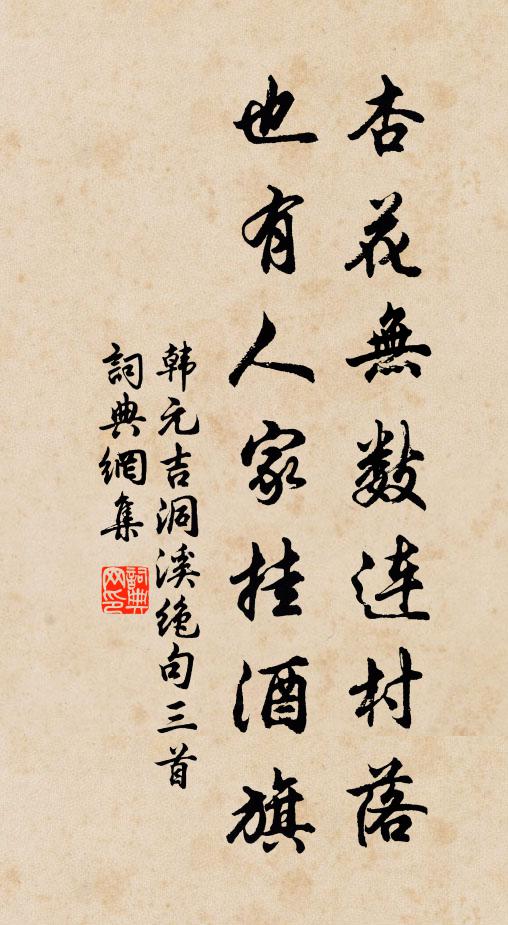 杏花無数连村落
也有人家挂酒旗
韩元吉洞溪绝句三首
詞典網集
詞典网印